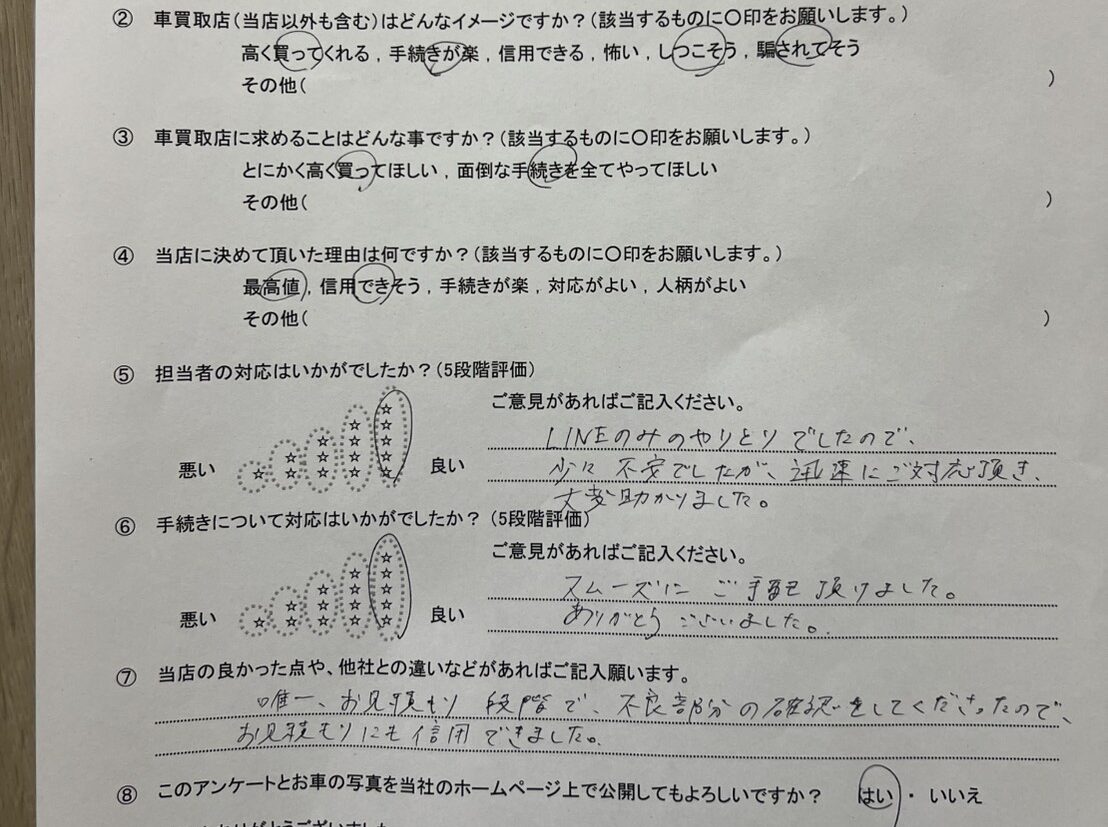 ② 車買取店(当店以外も含む)はどんなイメージですか?(該当するものに〇印をお願いします。)
高く買ってくれる , 手続きが楽 , 信用できる , 怖い , しつこそう , 騙されてそう
その他( )
③ 車買取店に求めることはどんな事ですか?(該当するものに〇印をお願いします。)
とにかく高く買ってほしい , 面倒な手続きを全てやってほしい
その他( )
④ 当店に決めて頂いた理由は何ですか?(該当するものに〇印をお願いします。)
最高値 , 信用できそう , 手続きが楽 , 対応がよい , 人柄がよい
その他( )
⑤ 担当者の対応はいかがでしたか?(5段階評価)
ご意見があればご記入ください。
LINEのみのやりとりでしたので、
悪い 良い 少々不安でしたが、迅速にご対応頂き、
大変助かりました。
⑥ 手続きについて対応はいかがでしたか?(5段階評価)
ご意見があればご記入ください。
スムーズにご手配頂けました。
悪い 良い ありがとうございました。
⑦ 当店の良かった点や、他社との違いなどがあればご記入願います。
唯一、お見積もり段階で、不良部分の確認をしてくださったので、
お見積もりにも信用できました。
⑧ このアンケートとお車の写真を当社のホームページ上で公開してもよろしいですか? はい ・ いいえ